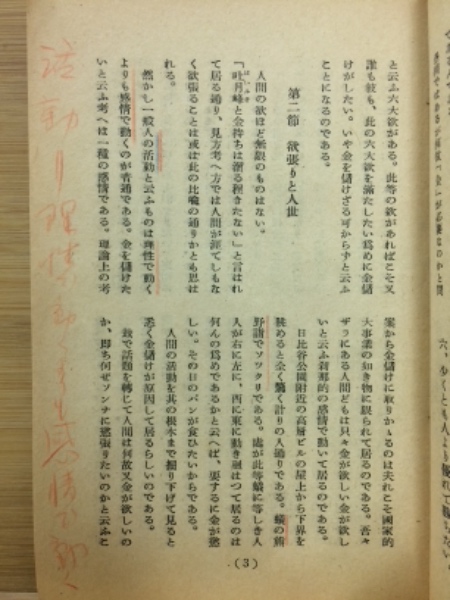 と云ふ六大欲がある。此等の欲があればこそ又
誰も彼も、此の六大欲を滿たしたい爲めに金儲
けがしたい。いや金を儲けざる可からずと云ふ
ことになるのである。
第二節 欲張りと人世
人間の欲ほど無限のものはない。
「吐月峰と金持ちは溜る程きたない」と言はれ
て居る通り、見方考へ方では人間が涯てしもな
く欲張ることは或は此の比喩の通りかとも思は
れる。
然かし一般人の活動と云ふものは理性で動く
よりも感情で動くのが普通である。金を儲けた
いと云ふ考へは一種の感情である。理論上の考
案から金儲けに取りかゝるのは夫れこそ國家的
大事業の如き物に限られて居るのである。吾々
ザラにある人間どもは只々金が欲しい金が欲し
いと云ふ刹那的の感情で動いて居るのである。
日比谷公園附近の高層ビルの屋上から下界を
眺めると全く驚く計りの人通りである。蟻の熊
野詣でソックリである。處が此等蟻に等しき人
人が右に左に、西に東に動き廻はつて居るのは
何んの爲めであるかと云へば、要するに金が欲
しい。その日のパンが食ひたいからである。
人間の活動を其の根本まで掘り下げて見ると
悉く金儲けが原因して居るらしいのである。
玆で話題を轉じて人間は何故又金が欲しいの
か、卽ち何ぜソンナに慾張りたいのかと云ふこ
(3)